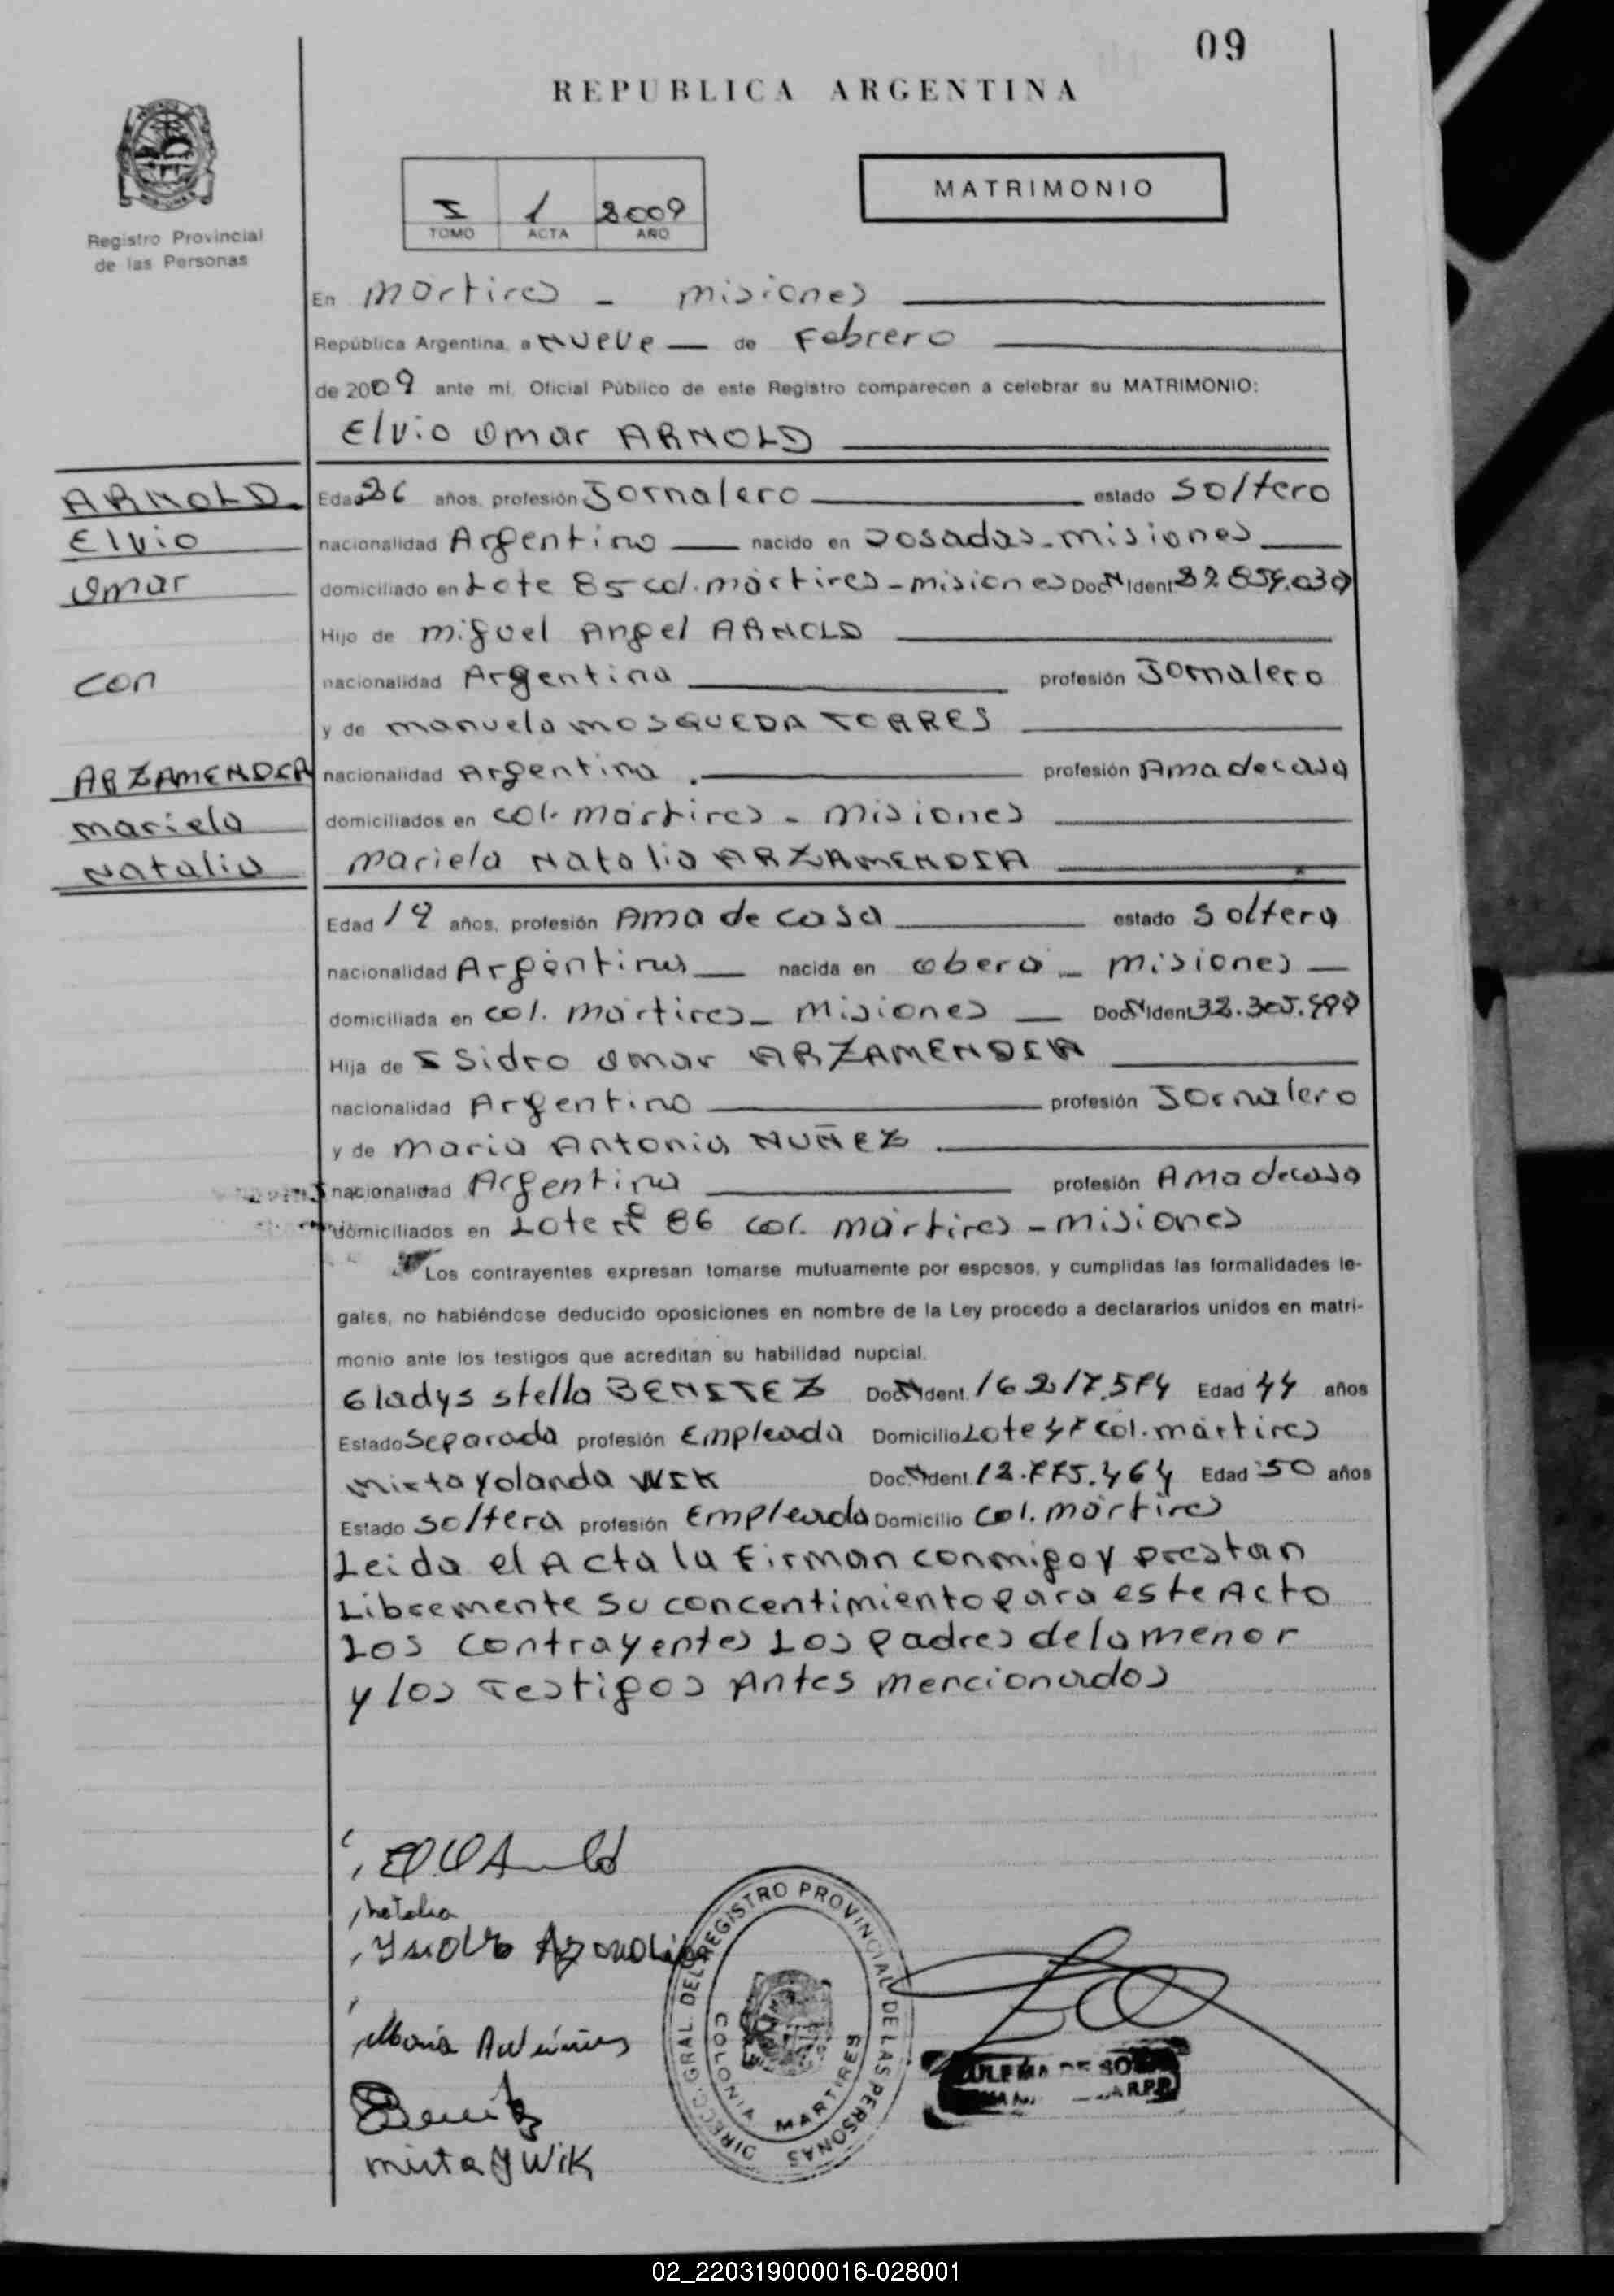 09
REPUBLICA ARGENTINA
Registro Provincial
de las Personas
I 1 2009
TOMO ACTA AÑO
MATRIMONIO
En Mártires - Misiones
República Argentina, a Nueve de Febrero
de 2009 ante mí, Oficial Público de este Registro comparecen a celebrar su MATRIMONIO:
Elvio Omar ARNOLD
ARNOLD
Elvio
Omar
con
ARZAMENDIA
Mariela
Natalia
Edad 26 años, profesión Jornalero estado Soltero
nacionalidad Argentino nacido en Posadas - Misiones
domiciliado en Lote 85 col. Mártires - Misiones Doc Nº Ident
Hijo de Miguel Angel ARNOLD
nacionalidad Argentina profesión Jornalero
y de Manuela MOSQUEDA TORRES
nacionalidad Argentina profesión Ama de casa
domiciliados en col. Mártires - Misiones
Mariela Natalia ARZAMENDIA
Edad años, profesión Ama de casa estado Soltera
nacionalidad Argentina nacida en Oberá - Misiones
domiciliada en col. Mártires - Misiones Doc Nº Ident
Hija de Isidro Omar ARZAMENDIA
nacionalidad Argentino profesión Jornalero
y de Maria Antonia NUÑEZ
nacionalidad Argentina profesión Ama de casa
domiciliados en Lote Nº 86 col. Mártires - Misiones
Los contrayentes expresan tomarse mutuamente por esposos, y cumplidas las formalidades le-
gales, no habiéndose deducido oposiciones en nombre de la Ley procedo a declararlos unidos en matri-
monio ante los testigos que acreditan su habilidad nupcial.
Gladys Stella BENITEZ Doc Nº Ident. 16.217.574 Edad 44 años
Estado Separada profesión Empleada Domicilio Lote 47 col. Mártires
Mirta Yolanda WIK Doc. Nº Ident. 12.775.464 Edad 50 años
Estado Soltera profesión Empleada Domicilio Col. Mártires
Leida el Acta la Firman conmigo y prestan
Libremente su concentimiento para este Acto
Los contrayentes Los Padres de la menor
y los Testigos Antes mencionados
Natalia
Maria
Benitez
Mirta Y Wik
DIRECC. GRAL. DEL REGISTRO PROVINCIAL DE LAS PERSONAS
COLONIA MARTIRES
02_220319000016-028001